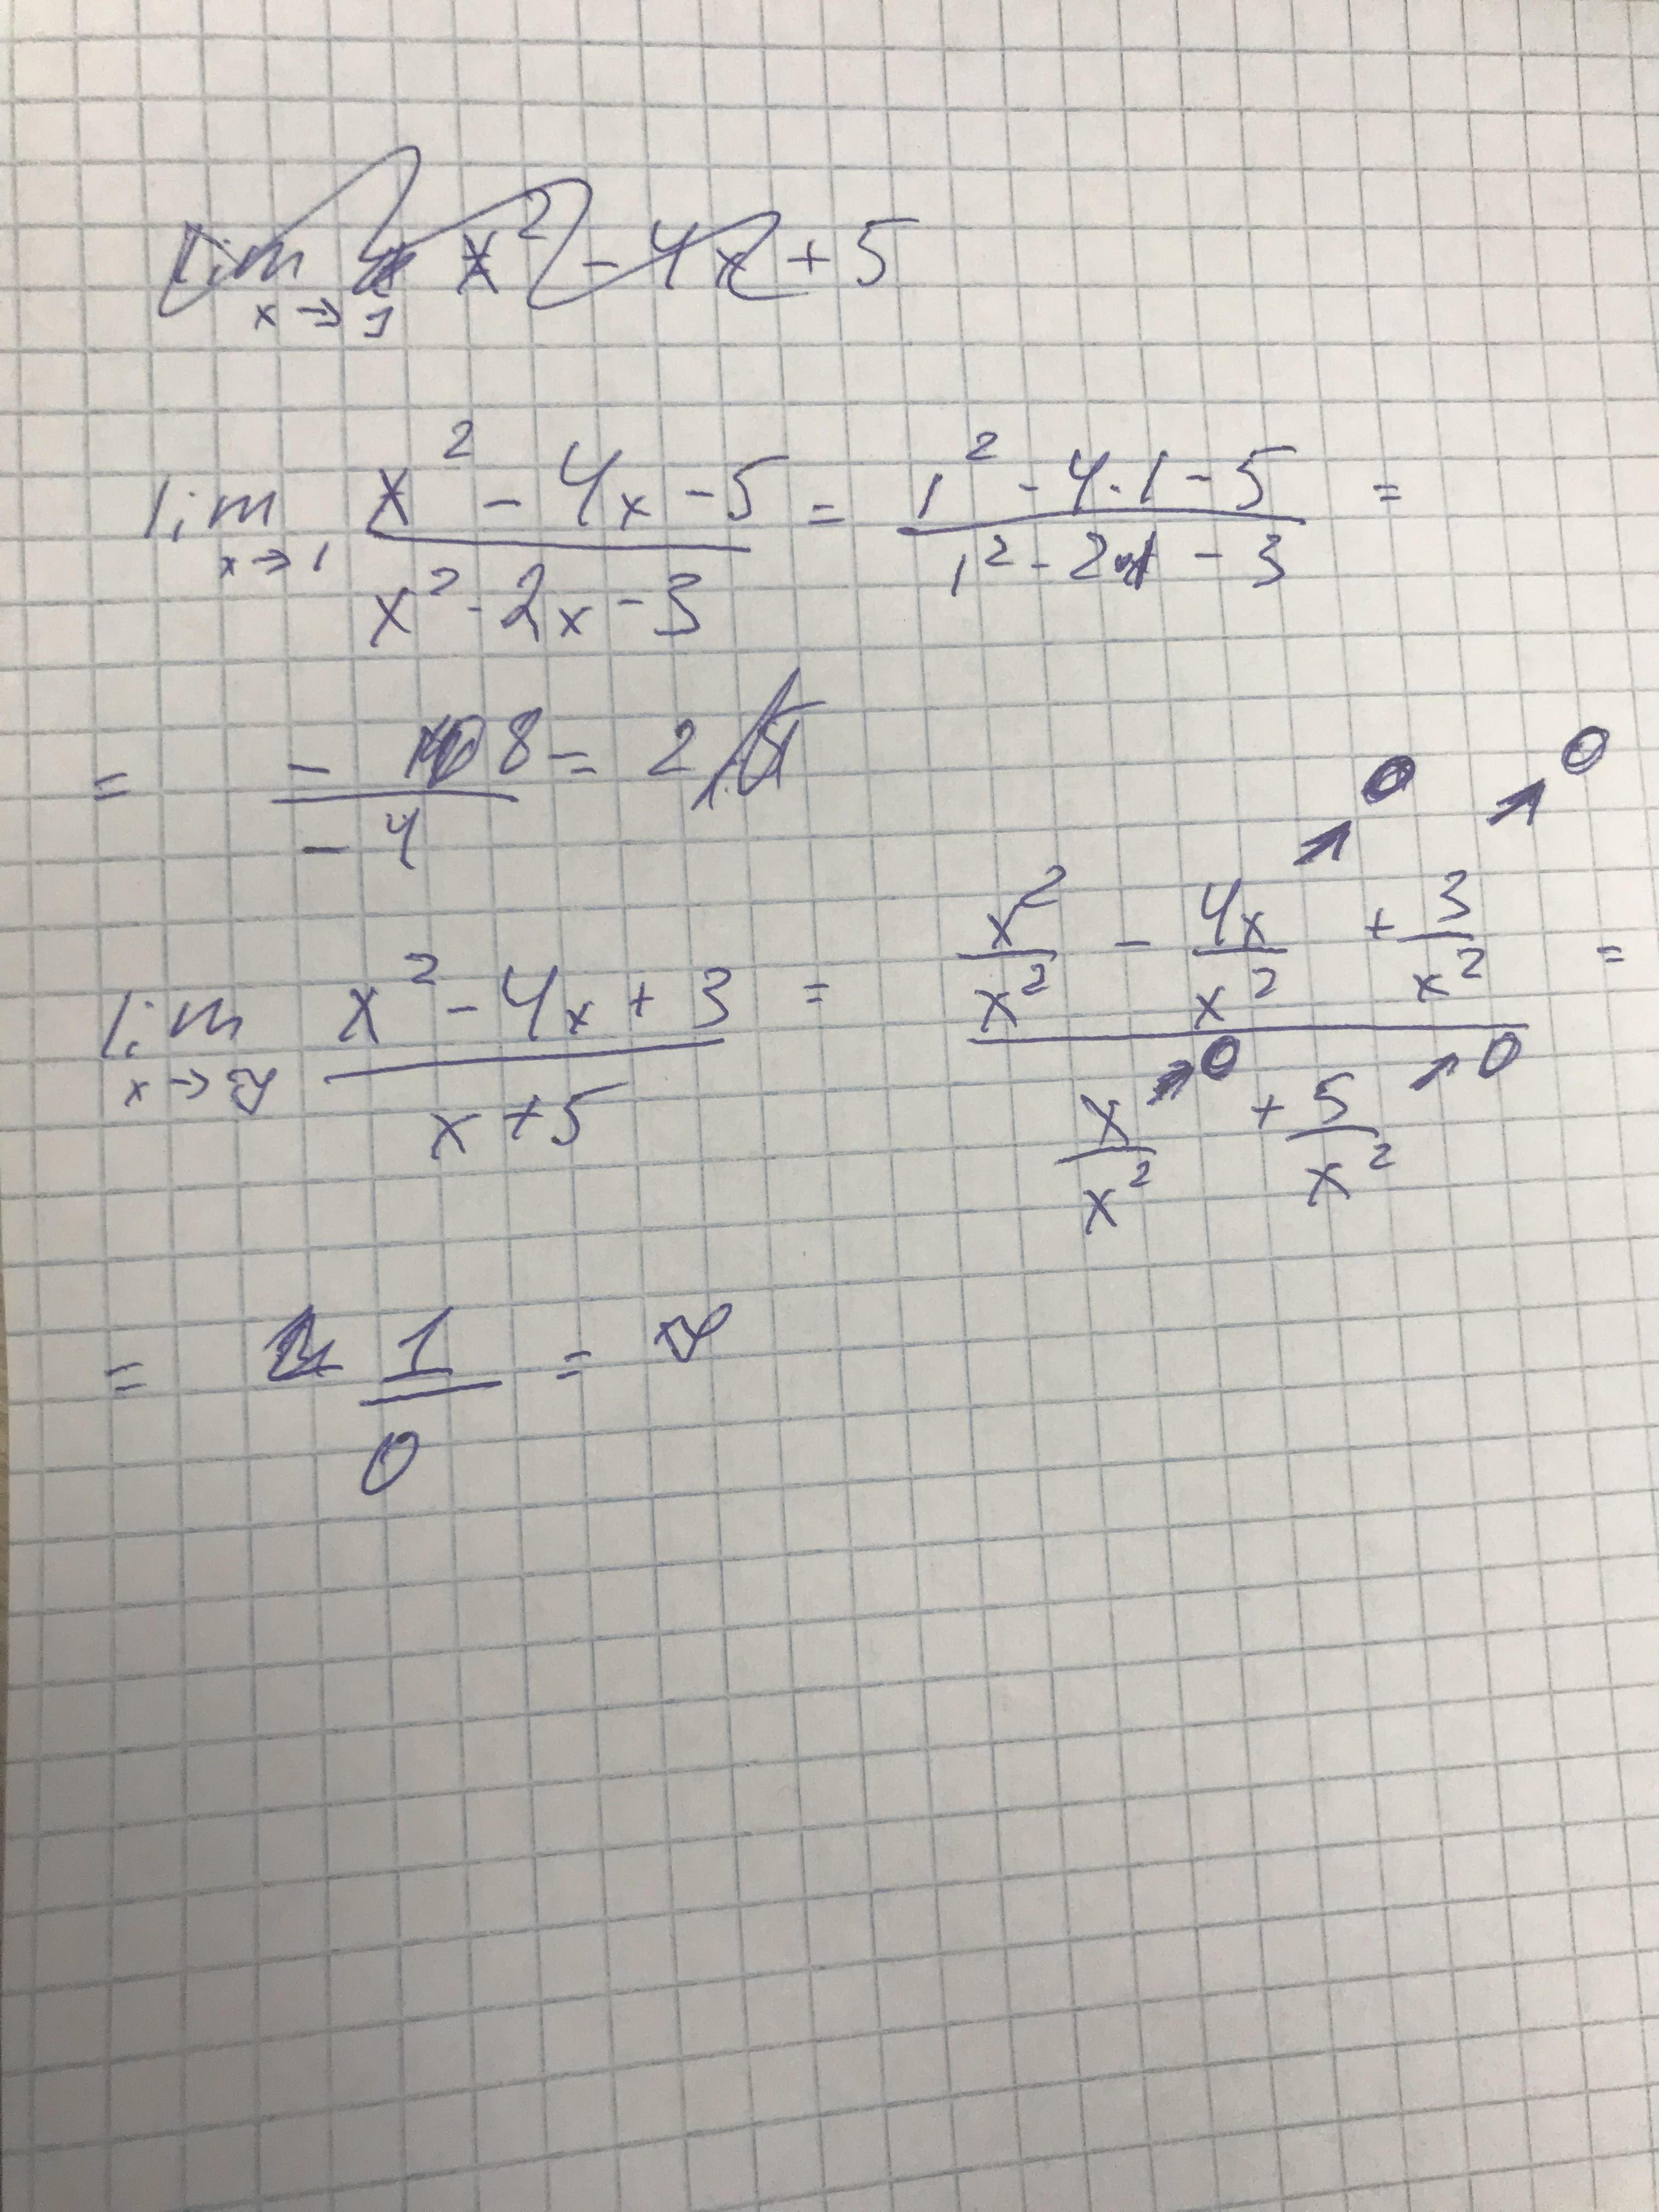 lim x→1 x² - 4x + 5
lim x→1 (x² - 4x - 5)/(x² - 2x - 3) = (1² - 4·1 - 5)/(1² - 2·1 - 3) =
= -8/-4 = 2
lim x→∞ (x² - 4x + 3)/(x + 5) = (x²/x² - 4x/x² ↗0 + 3/x² ↗0)/(x/x² ↗0 + 5/x² ↗0) =
= 1/0 = ∞